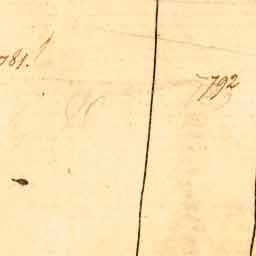 781.
792